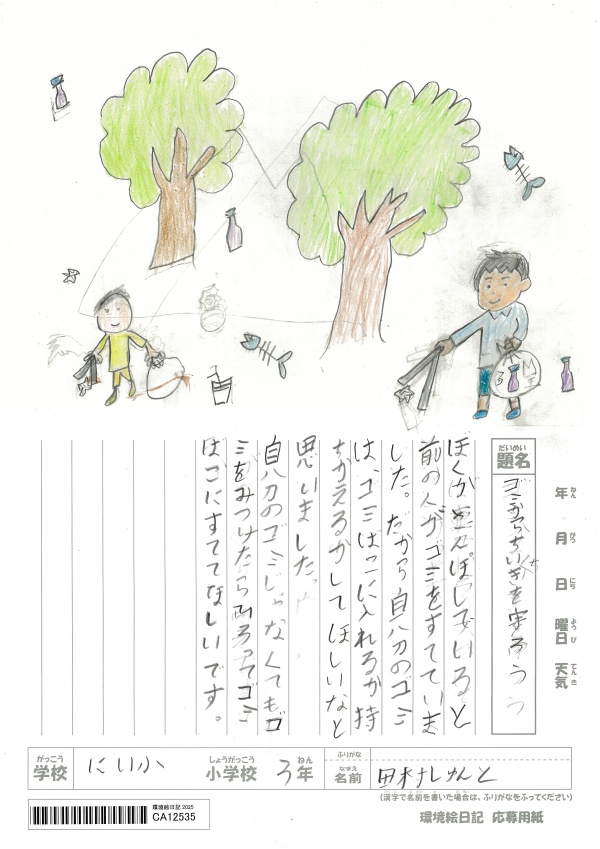 だいめい
題名
ゴミからちいきを守ろう
年 ねん
月 がつ
日 にち
曜日 ようび
天気 てんき
ぼくがさんぽしていると
前の人がゴミをすてていま
した。だから自分のゴミ
は、ゴミばこに入れるか持
ちかえるかしてほしいなと
思いました。
自分のゴミじゃなくてもゴ
ミをみつけたらひろってゴミ
ばこにすててほしいです。
がっこう
学校
にいふ
しょうがっこう
小学校
3
ねん
年
ふりがな
なまえ
名前
田村しゅんと
(漢字で名前を書いた場合は、ふりがなをふってください)
環境絵日記 2025
CA12535
環境絵日記 応募用紙